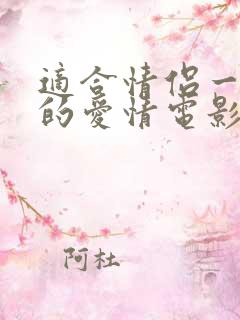 適合情侶一
的愛情電影
阿杜